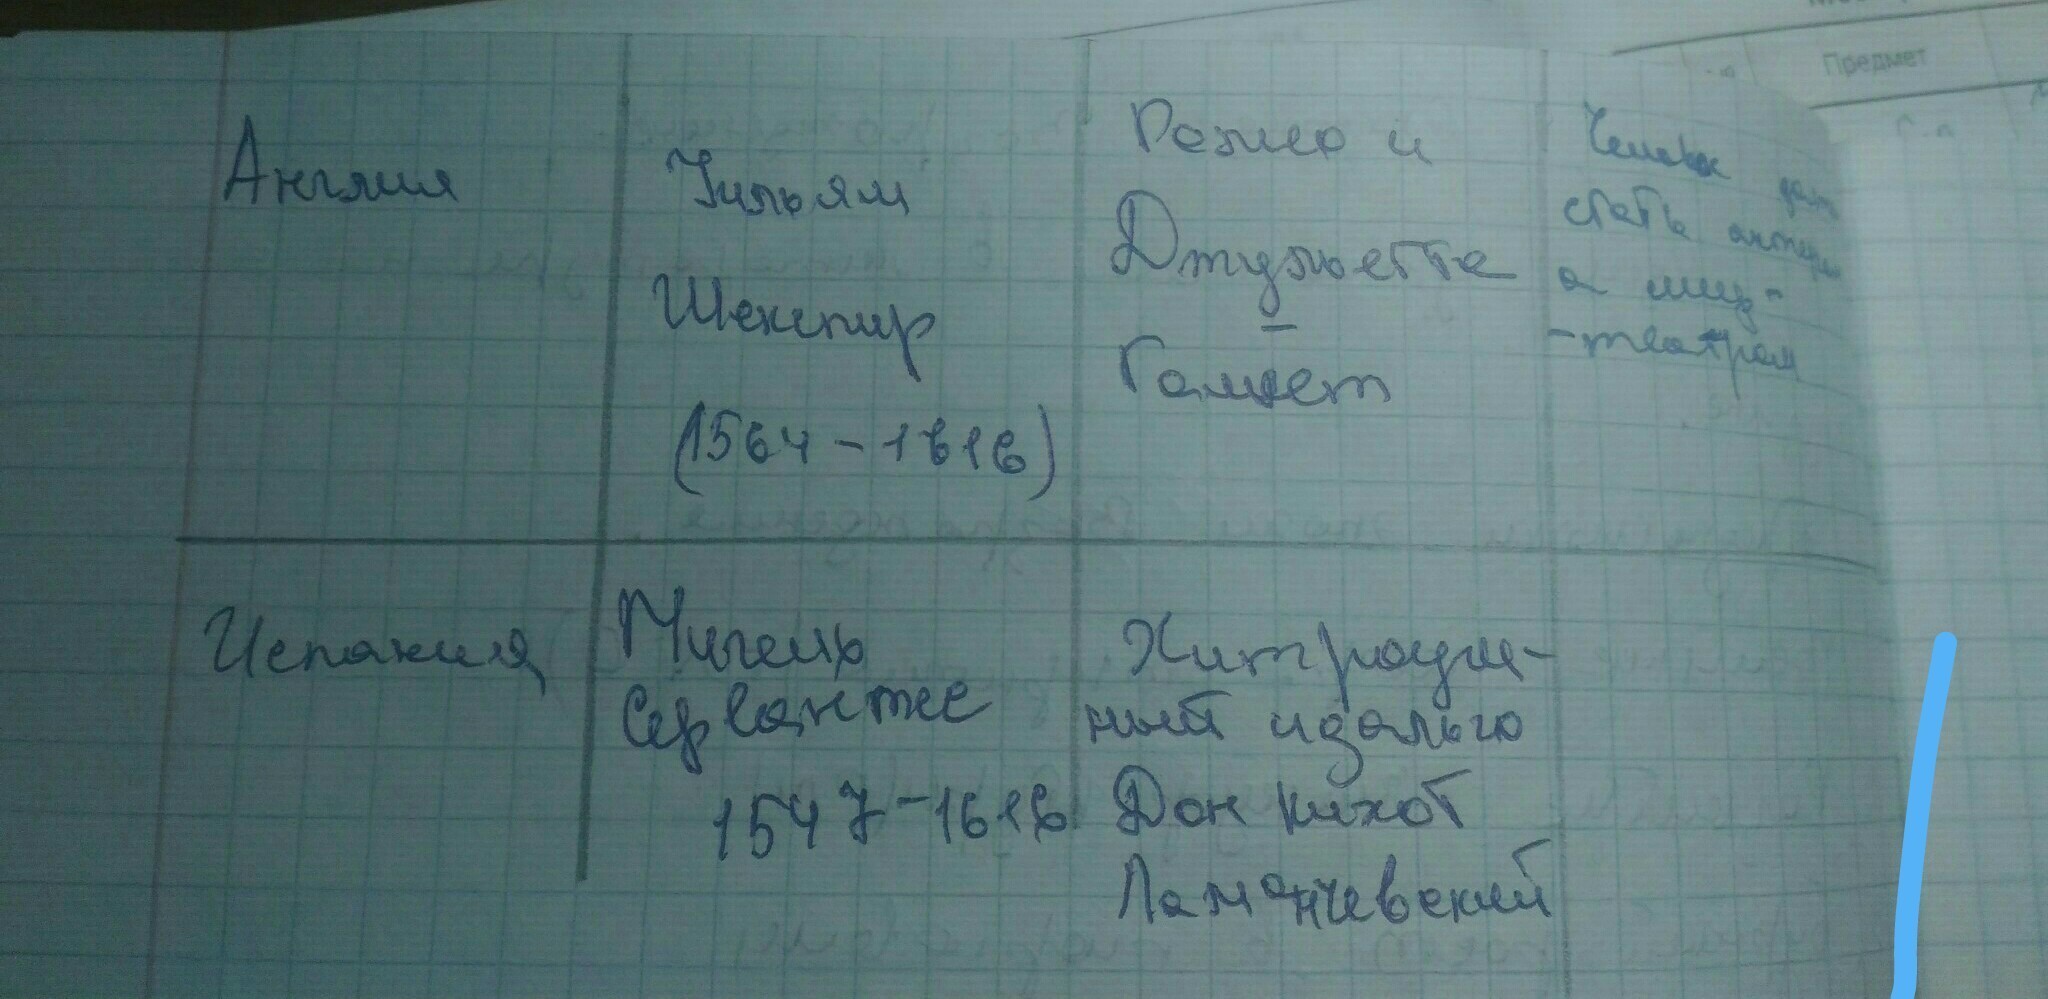 Предмет
Англия
Уильям
Шекспир
(1564 - 1616)
Ромео и
Джульетта
-
Гамлет
Человек
стать актером
а мир-
-театром
Испания
Мигель
Сервантес
1547-1616
Хитроум-
ный идальго
Дон Кихот
Ламанчевский